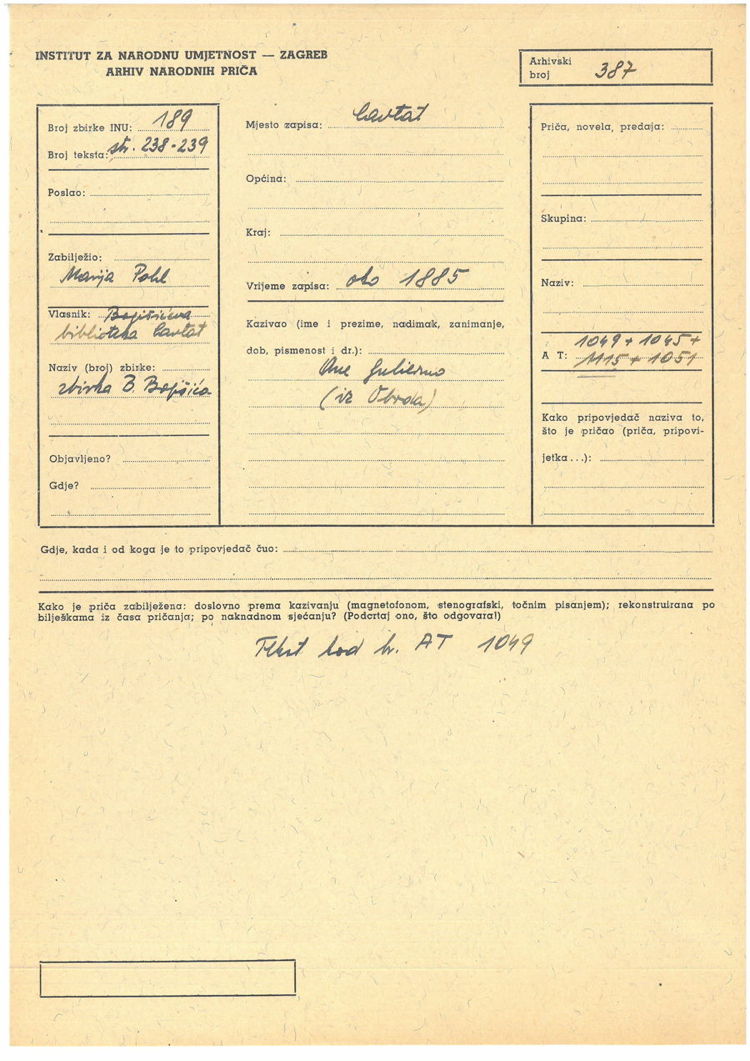 INSTITUT ZA NARODNU UMJETNOST — ZAGREB
ARHIV NARODNIH PRIČA
Arhivski
broj 387
Broj zbirke INU: 189
Broj teksta: str. 238-239
Poslao:
Zabilježio:
Marija Pohl
Vlasnik: Bogišićeva
biblioteka Cavtat
Naziv (broj) zbirke:
zbirka B. Bogišića
Objavljeno?
Gdje?
Mjesto zapisa: Cavtat
Općina:
Kraj:
Vrijeme zapisa: oko 1885
Kazivao (ime i prezime, nadimak, zanimanje,
dob, pismenost i dr.):
(iz Obroda)
Priča, novela, predaja:
Skupina:
Naziv:
1049 + 1045 +
A T: 1115 + 1051
Kako pripovjedač naziva to,
što je pričao (priča, pripovi-
jetka...):
Gdje, kada i od koga je to pripovjedač čuo:
Kako je priča zabilježena: doslovno prema kazivanju (magnetofonom, stenografski, točnim pisanjem); rekonstruirana po
bilješkama iz časa pričanja; po naknadnom sjećanju? (Podcrtaj ono, što odgovara!)
Tekst kod br. AT 1049